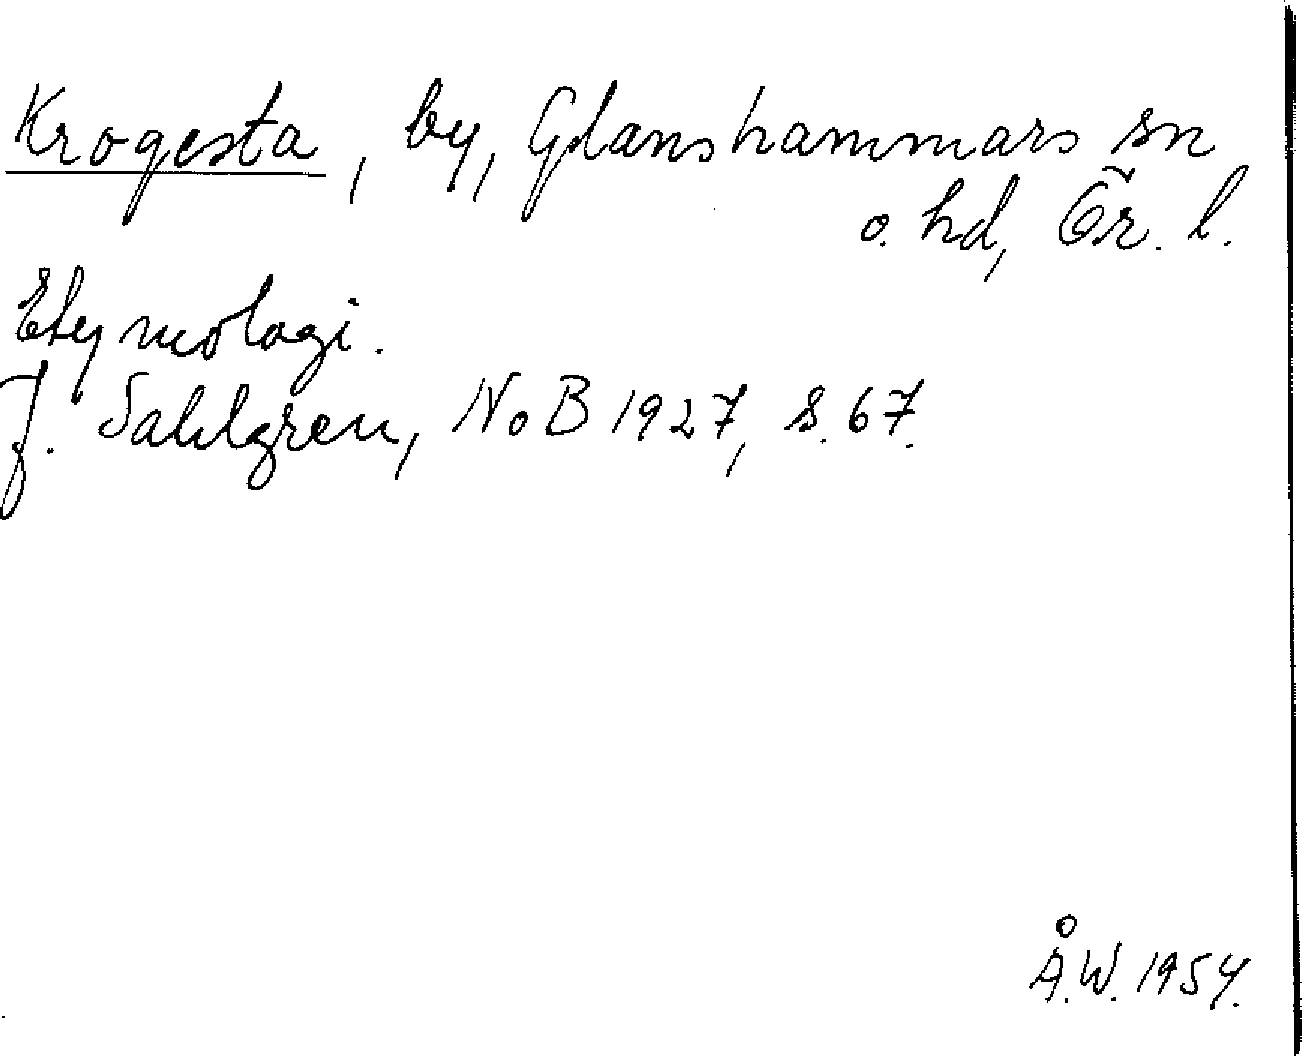 Krogesta, by, Glanshammars sn
o. hd, Ör. l.
Etymologi.
J. Sahlgren, NoB 1927, s. 67.
Å.W. 1954.